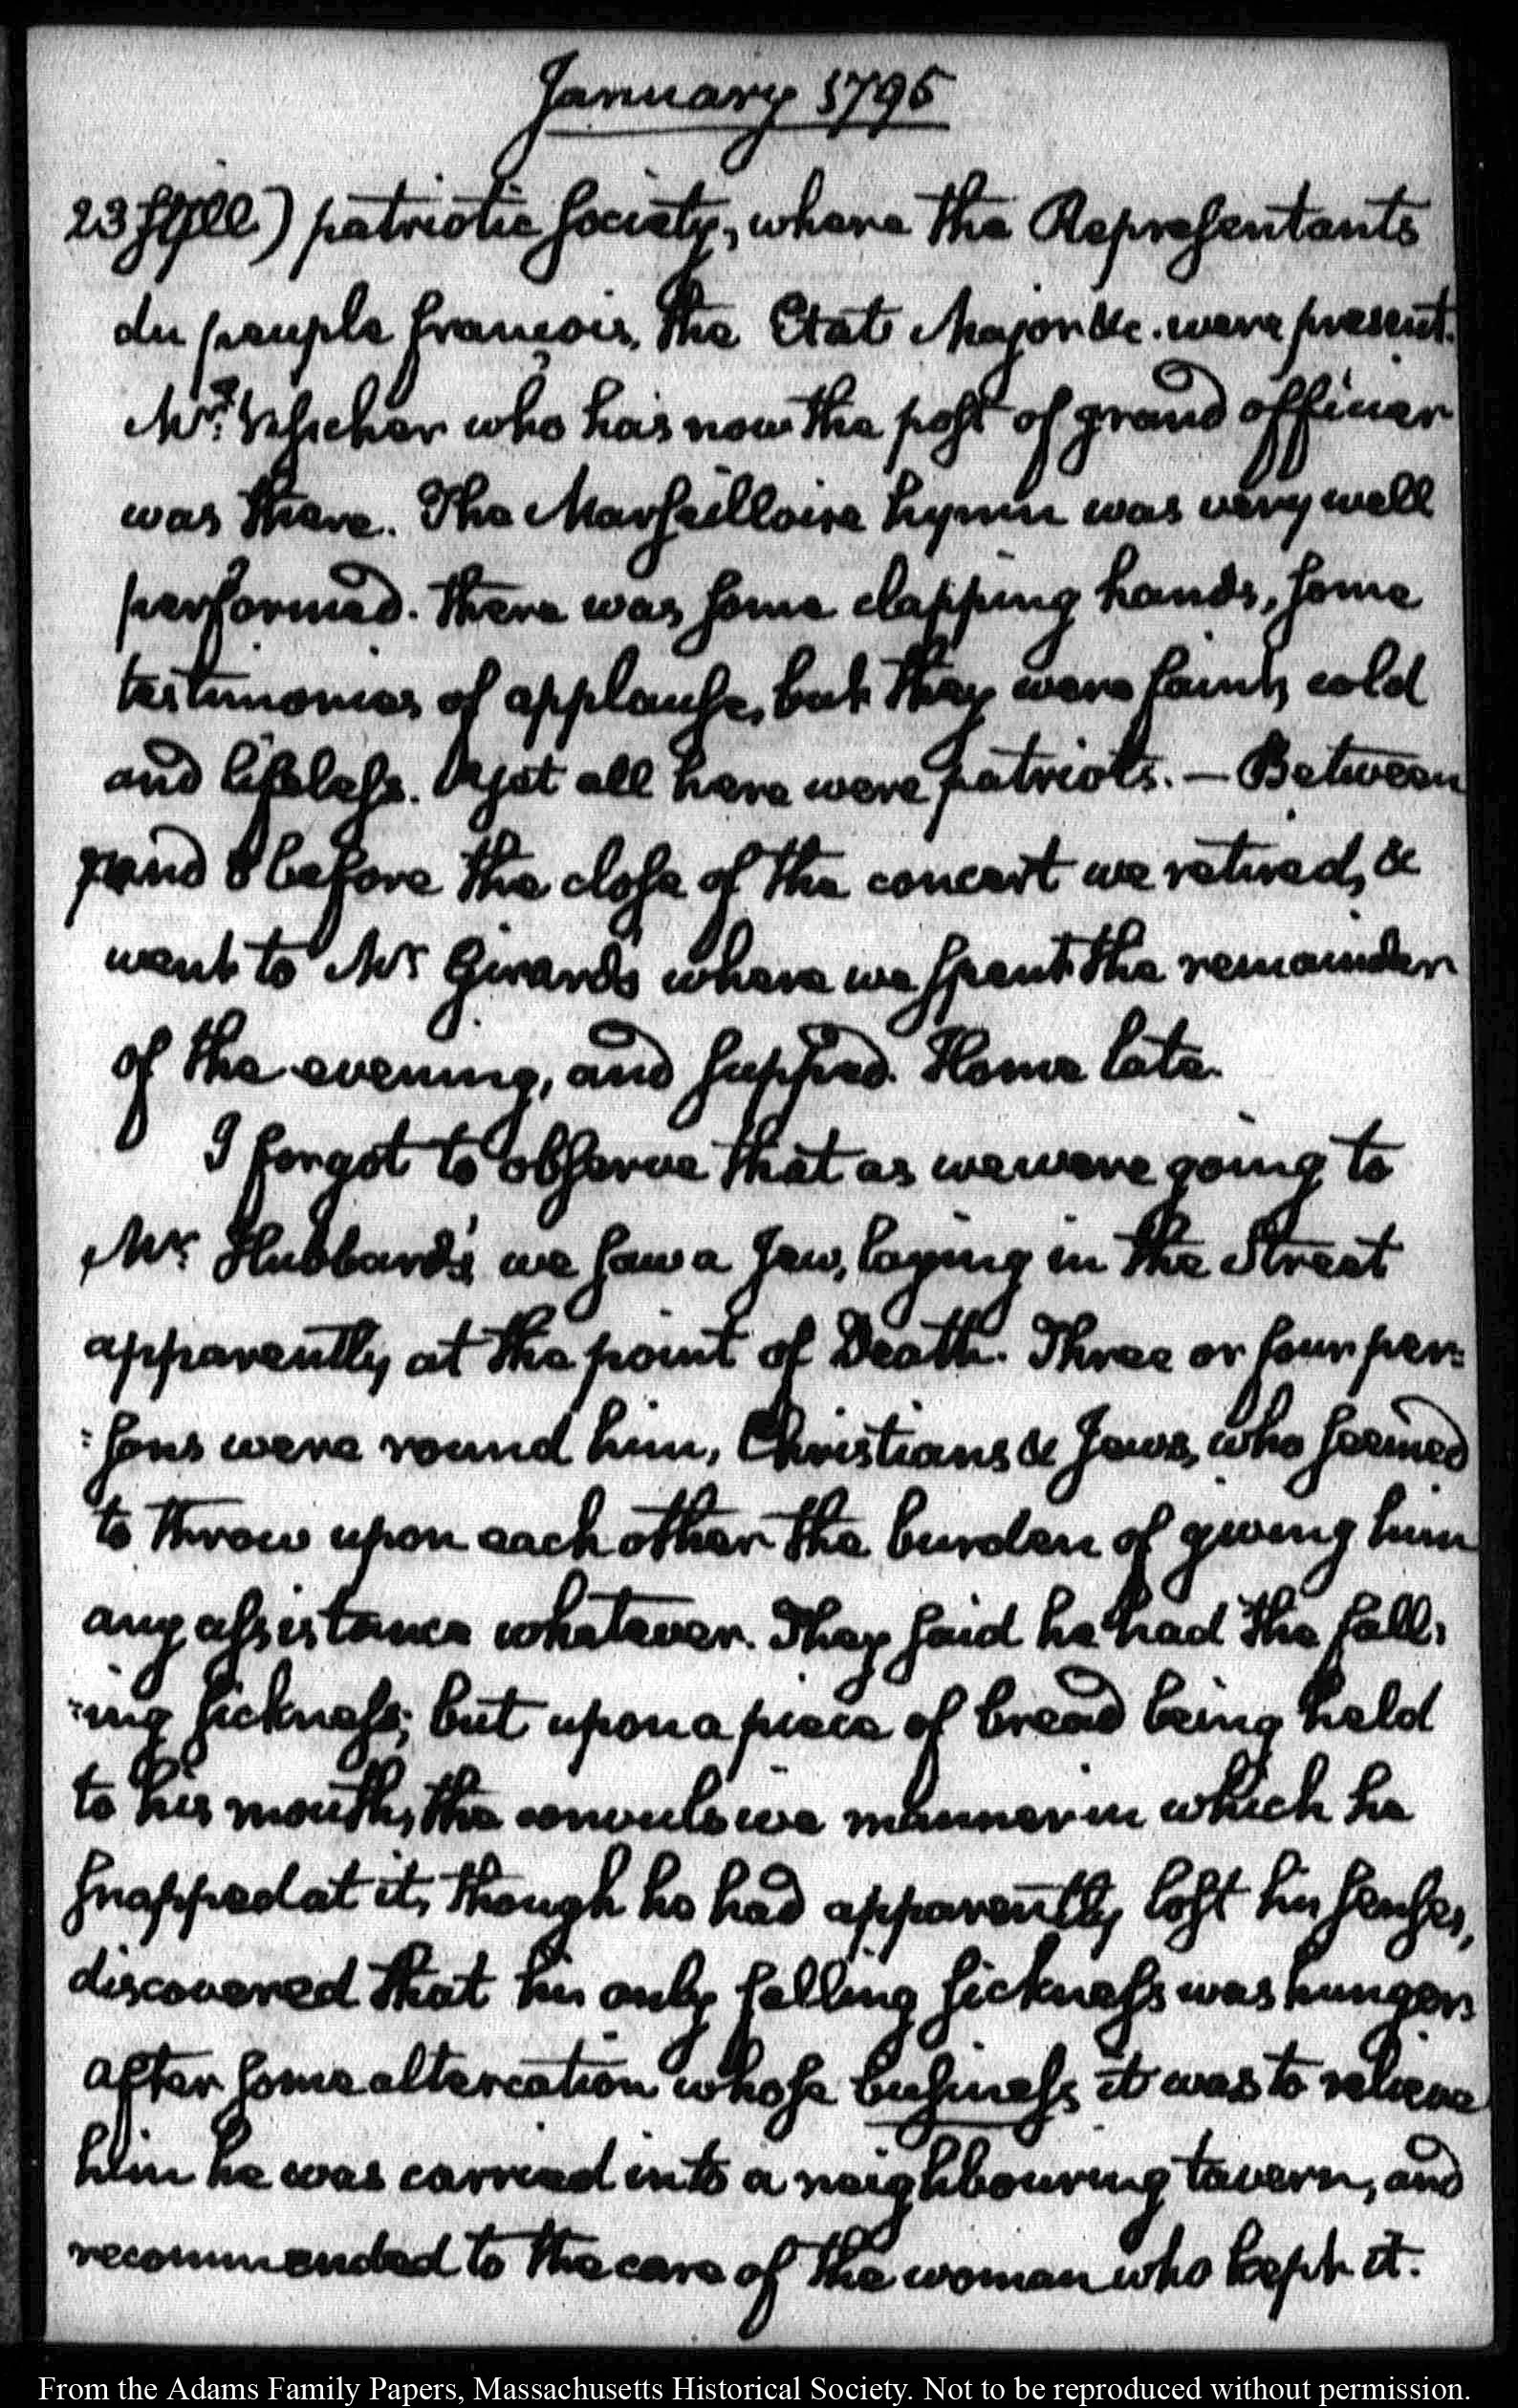 January 1795
23 patriotic Society, where the Representants
du peuple françois, the Etat Major &c. were present.
Mr. Visscher who has now the post of grand officier
was there. The Marseilloise hymn was very well
performed. there was some clapping hands, some
testimonies of applause, but they were faint, cold
and lifeless. yet all here were patriots. — Between
and 8 before the close of the concert we retired, &
went to Mr Girard's where we spent the remainder
of the evening, and supped. Home late.
I forgot to observe that as we were going to
Mr. Hubbard's we saw a Jew, laying in the Street
apparently at the point of Death. Three or four per=
=sons were round him, Christians & Jews, who seemed
to throw upon each other the burden of giving him
any assistance whatever. They said he had the fall=
=ing sickness; but upon a piece of bread being held
to his mouth, the convulsive manner in which he
snapped at it, though he had apparently lost his senses,
discovered that his only falling sickness was hunger.
after some altercation whose business it was to relieve
him he was carried into a neighbouring tavern, and
recommended to the care of the woman who kept it.
From the Adams Family Papers, Massachusetts Historical Society. Not to be reproduced without permission.